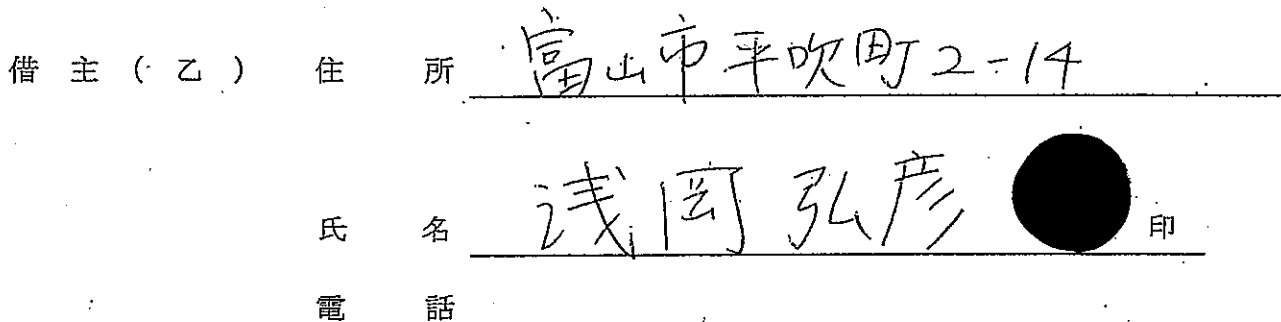 借主(乙) 住所 富山市平吹町2-14
氏名 浅岡弘彦 印
電話